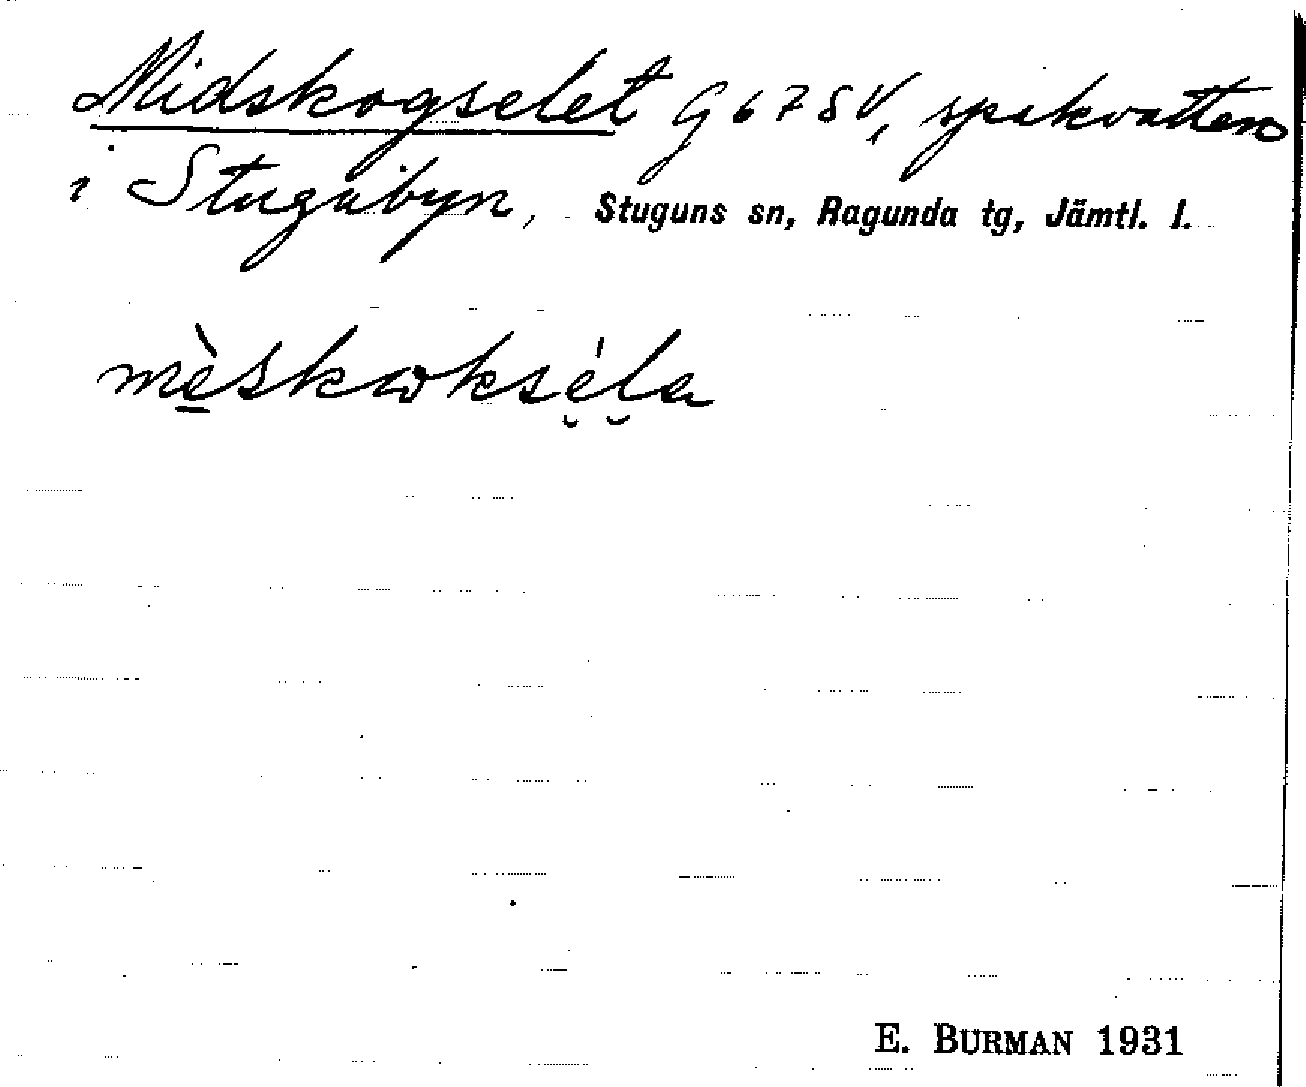 Midskogselet G 67 SV, spakvatten
i Stugubyn, Stuguns sn, Ragunda tg, Jämtl. l.
mè̱skωksé̮l̮a
E. BURMAN 1931